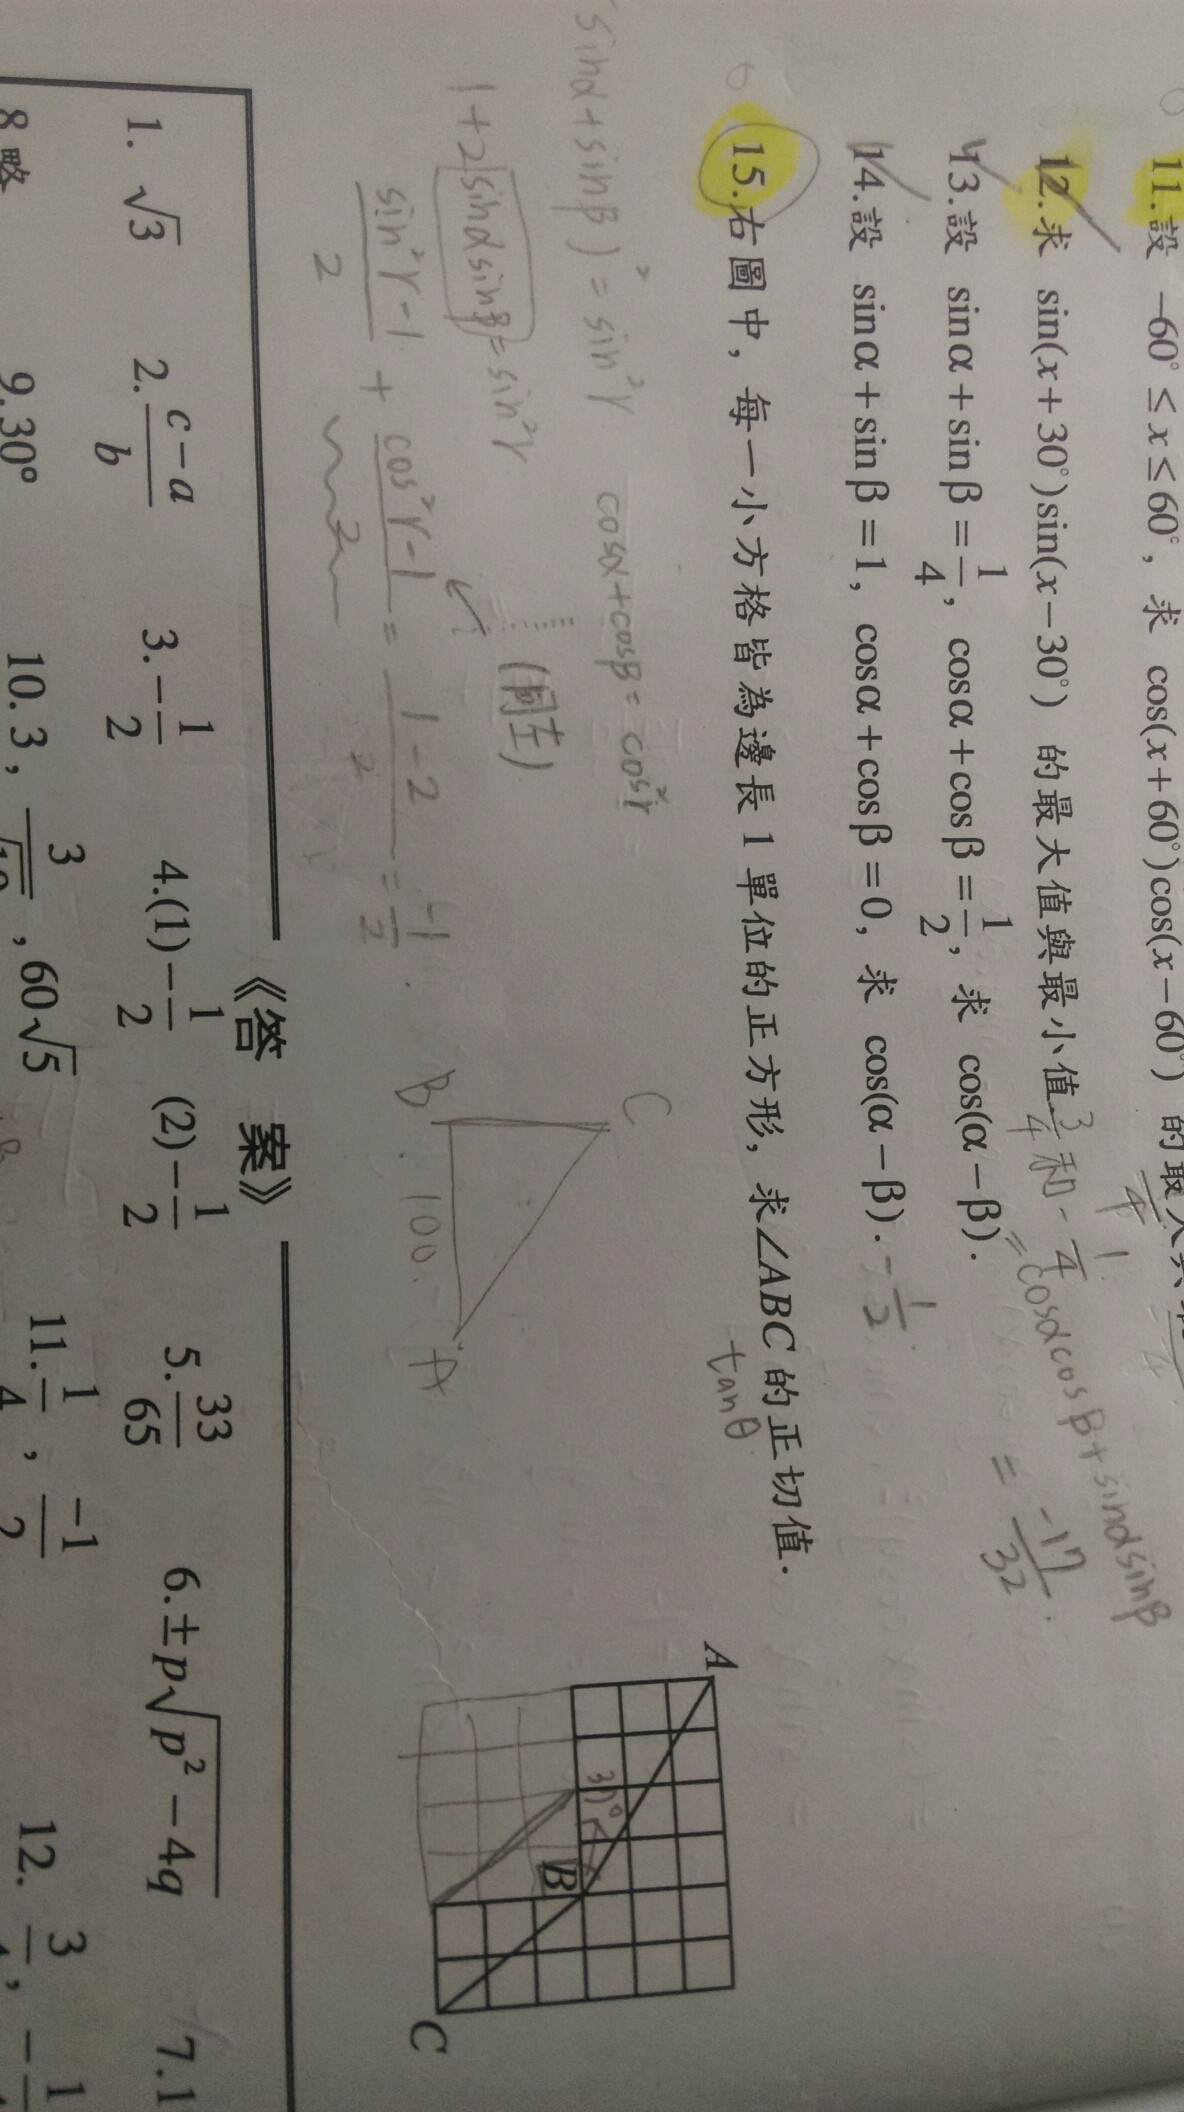 11.設 −60°≤x≤60°, 求 cos(x+60°)cos(x−60°) 的最大
12.求 sin(x+30°)sin(x−30°) 的最大值與最小值. 3/4 和 -1/4
13.設 sinα+sinβ=1/4, cosα+cosβ=1/2, 求 cos(α−β).
= cosαcosβ+sinαsinβ
= -17/32
14.設 sinα+sinβ=1, cosα+cosβ=0, 求 cos(α−β). -1/2
15.右圖中, 每一小方格皆為邊長1單位的正方形, 求∠ABC的正切值.
tanθ
A
B
C
sinα+sinβ)²=sin²γ
cosα+cosβ=cos²γ
1+2sinαsinβ=sin²γ
(同左)
sin²γ-1/2 + cos²γ-1/2 = 1-2/2 = -1/2
C
B
A
《答 案》
1. √3
2. c−a/b
3. −1/2
4.(1)−1/2 (2)−1/2
5. 33/65
6. ±p√p²−4q
7.1
8.略
9.30°
10. 3, 3/√10, 60√5
11. 1/4, −1/2
12. 3/4, −1/4